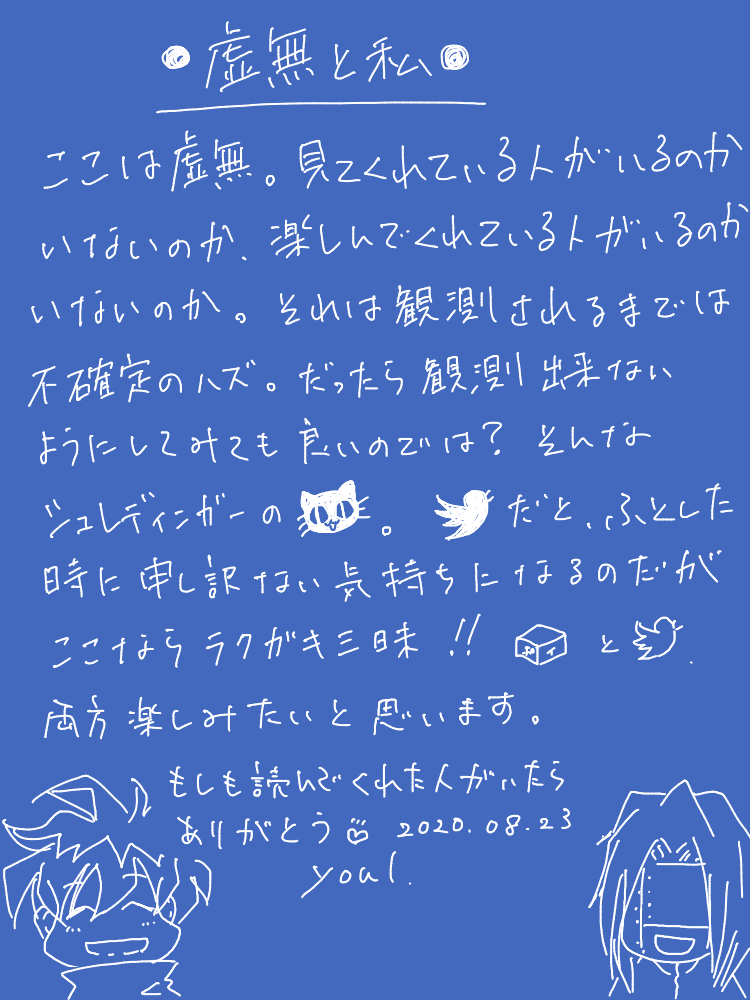 虚無と私
ここは虚無。見てくれている人がいるのか
いないのか、楽しんでくれている人がいるのか
いないのか。それは観測されるまでは
不確定のハズ。だったら観測出来ない
ようにしてみても良いのでは?そんな
シュレディンガーの。だと、ふとした
時に申し訳ない気持ちになるのだが
ここならラクガキ三昧!!と
両方楽しみたいと思います。
もしも読んでくれた人がいたら
ありがとう 2020.08.23
youl.